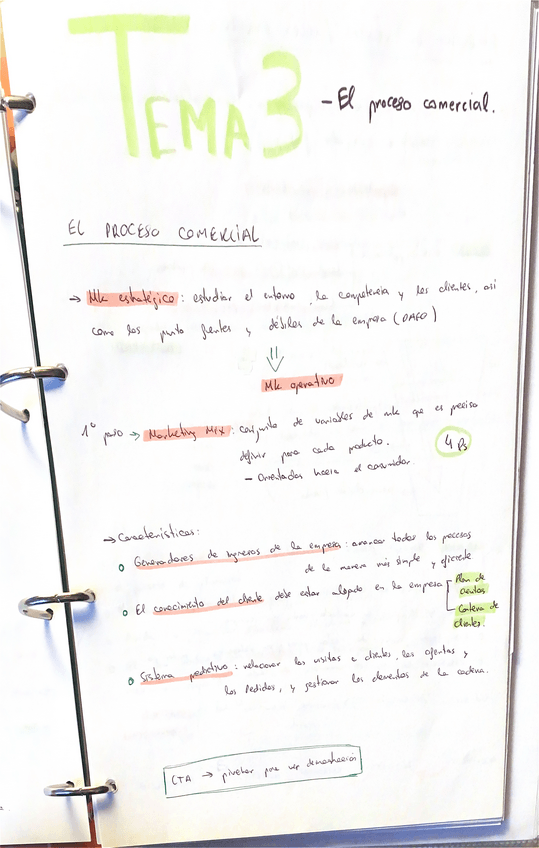 TEMA 3 - El proceso comercial.
EL PROCESO COMERCIAL
→ Mk estratégico: estudiar el entorno, la competencia y los clientes, así
como los punto fuertes y débiles de la empresa (DAFO)
⇓
Mk operativo
1º paso → Marketing Mix: conjunto de variables de mk que es preciso
definir para cada producto.
4 Ps
- Orientadas hacia el consumidor
→ Características:
o Generadores de ingresos de la empresa: avanzar todos los procesos
de la manera más simple y eficiente
o El conocimiento del cliente debe estar alojado en la empresa
Plan de
cuentas
Cartera de
clientes.
o Sistema predictivo: relacionar las visitas a clientes, las ofertas y
los pedidos, y gestionar los elementos de la cadena.
CTA → pinchar para ver